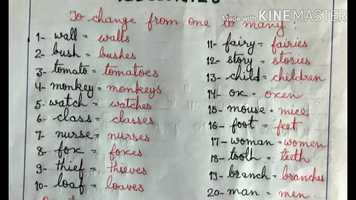 MADE WITH KINEMASTER
To change from one to many :
1- wall = walls
2- bush = bushes
3- tomato = tomatoes
4- monkey = monkeys
5- watch = watches
6- class = classes
7- nurse = nurses
8- fox = foxes
9- thief = thieves
10- loaf = loaves
11- fairy = fairies
12- story = stories
13- child = children
14- ox = oxen
15- mouse = mice
16- foot = feet
17- woman = women
18- tooth = teeth
19- branch = branches
20- man = men